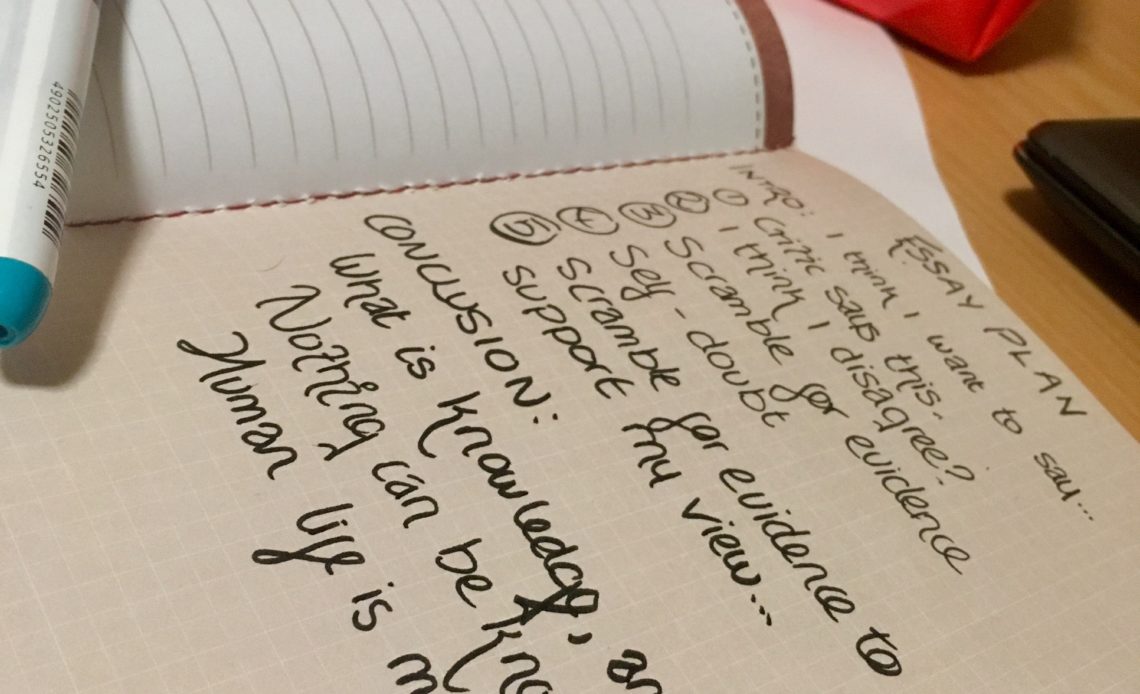 4902505326554
ESSAY PLAN
INTRO: I think I want to say...
① Critic says this.
② I think I disagree?
③ Scramble for evidence
④ Self-doubt
⑤ scramble for evidence to
support my view...
CONCLUSION:
What is knowledge, an
Nothing can be kno
Human life is m